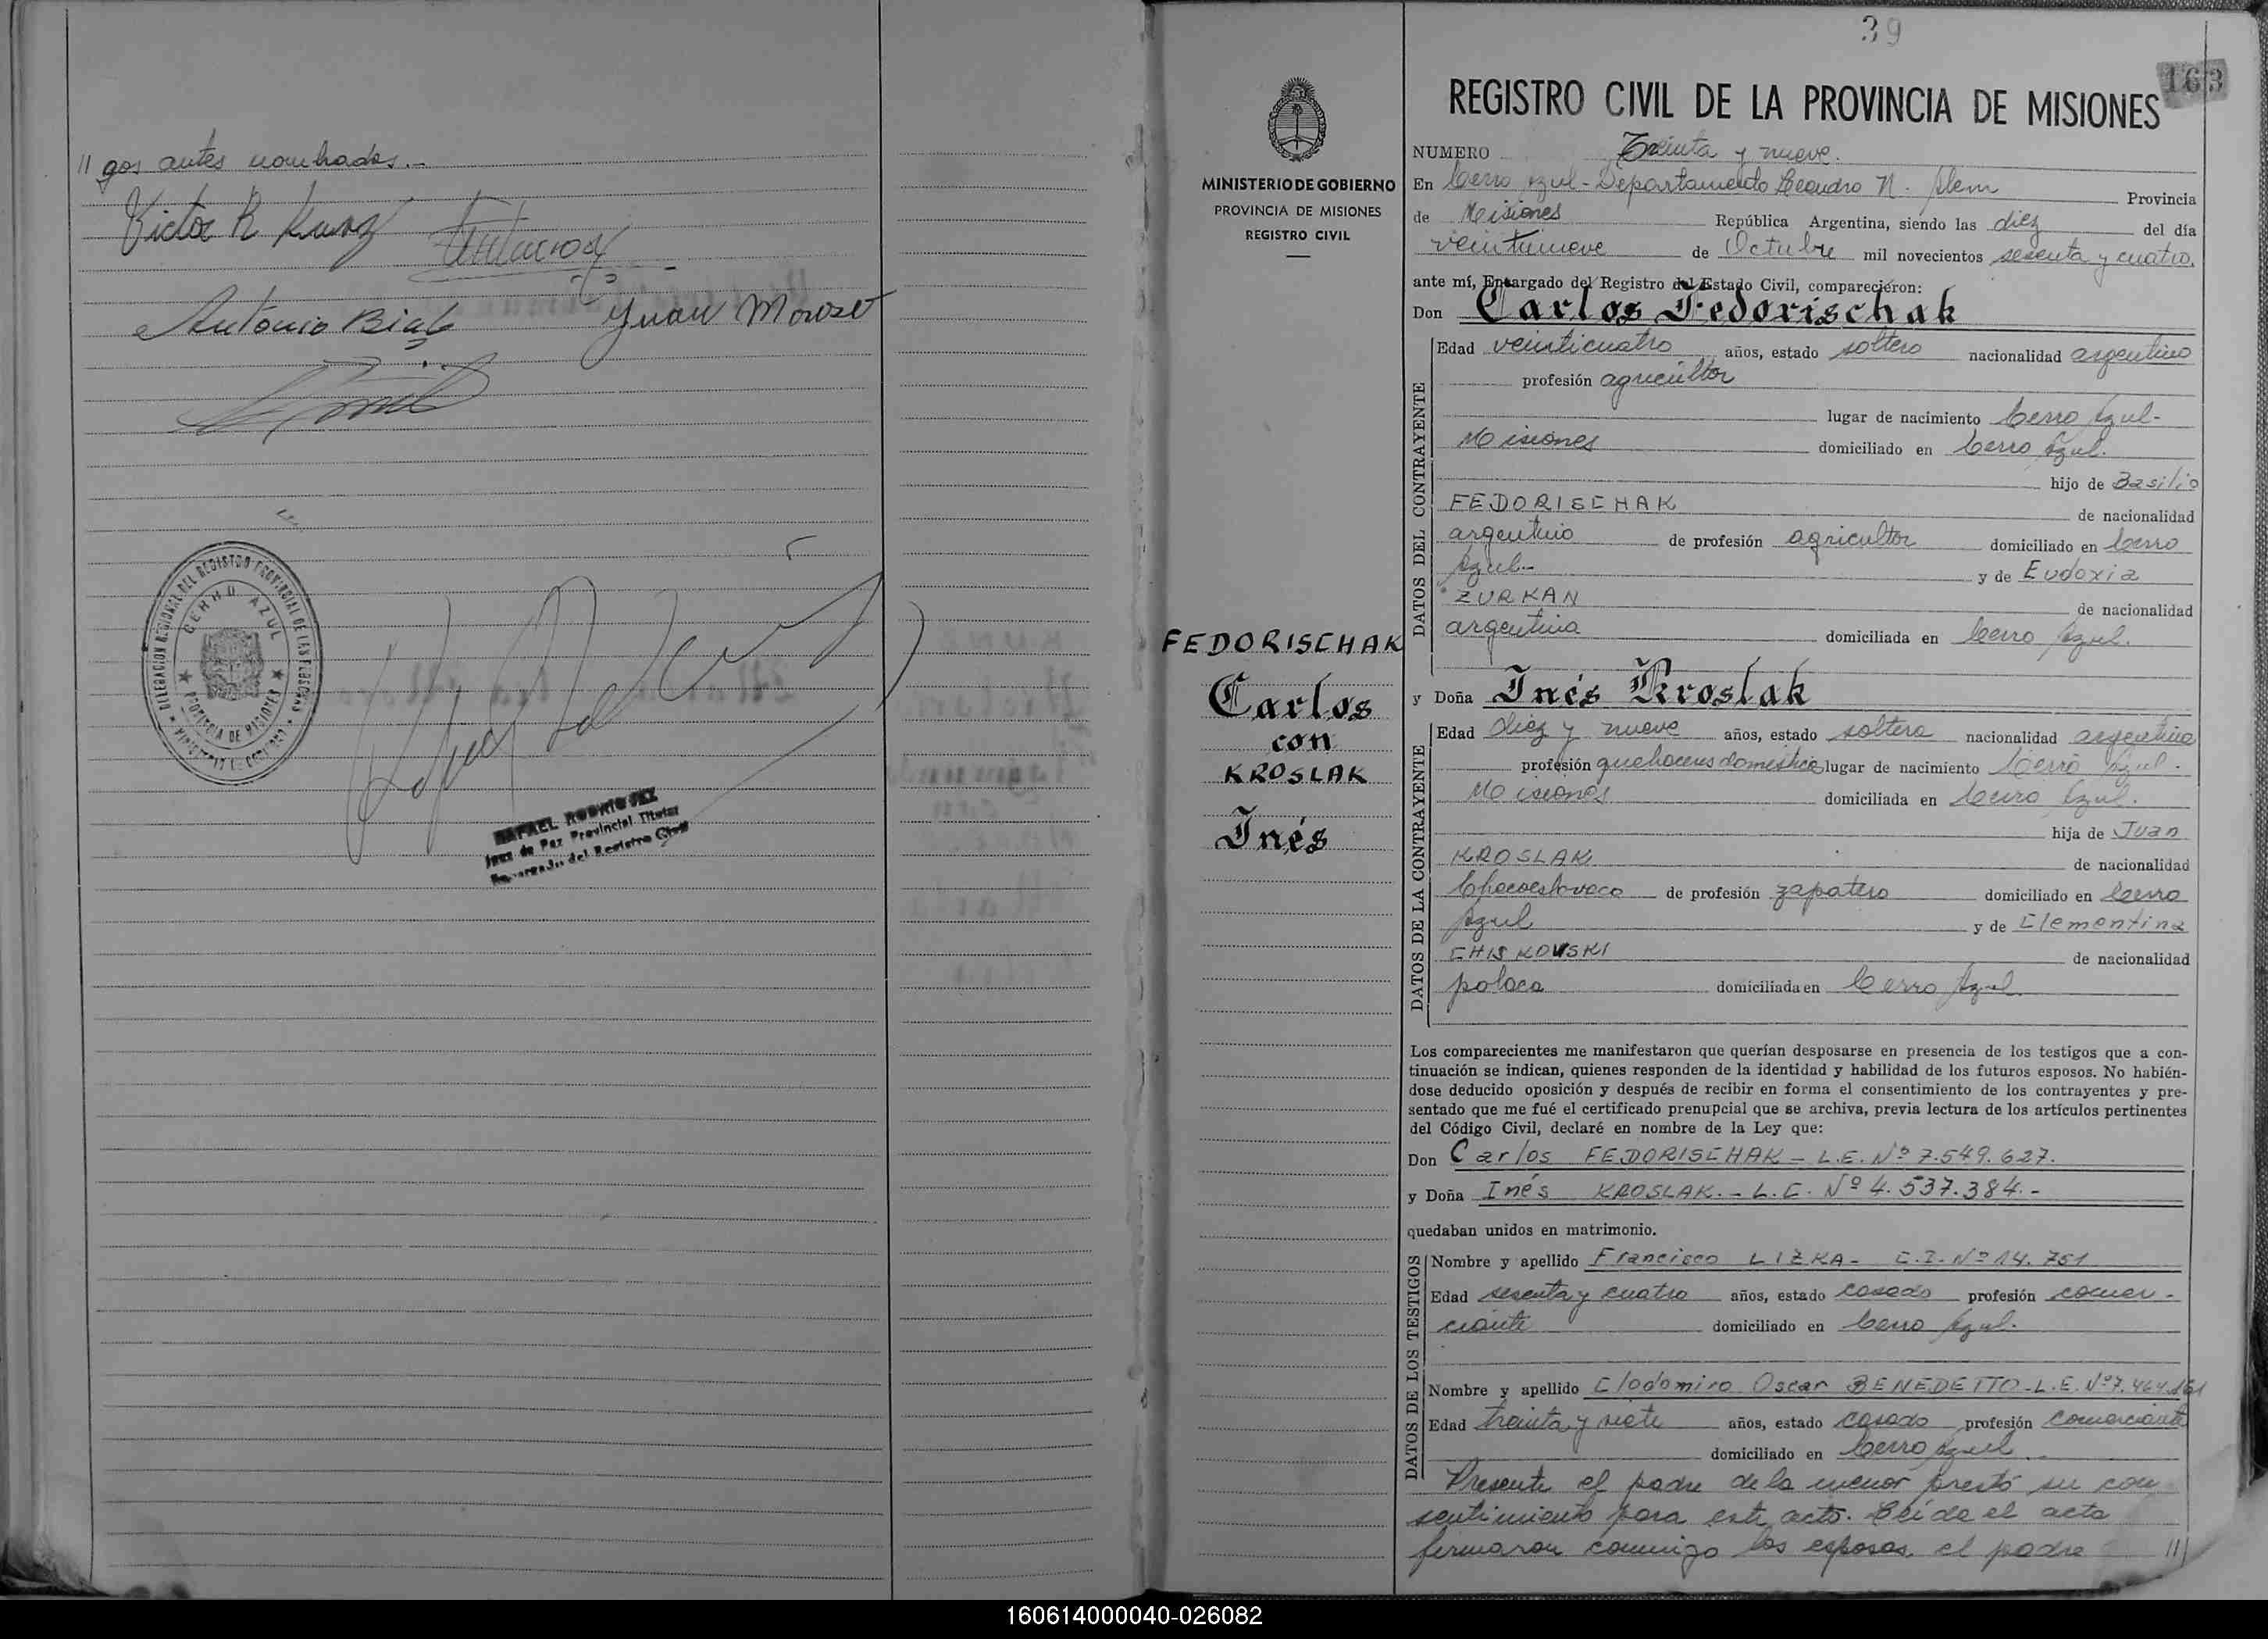 // gos antes nombrados.-
Victor R Kunz
Antonio Bial
Juan Morozo
DELEGACION REGIONAL DEL REGISTRO PROVINCIAL DE LAS PERSONAS
CERRO AZUL
PROVINCIA DE MISIONES
RAFAEL RODRIGUEZ
Juez de Paz Provincial Titular
Encargado del Registro Civil
39
163
MINISTERIO DE GOBIERNO
PROVINCIA DE MISIONES
REGISTRO CIVIL
FEDORISCHAK
Carlos
con
KROSLAK
Inés
REGISTRO CIVIL DE LA PROVINCIA DE MISIONES
NUMERO Treinta y nueve.
En Cerro Azul - Departamento Leandro N. Alem Provincia
de Misiones República Argentina, siendo las diez del día
veintinueve de Octubre mil novecientos sesenta y cuatro,
ante mí, Encargado del Registro del Estado Civil, comparecieron:
Don Carlos Fedorischak
DATOS DEL CONTRAYENTE
Edad veinticuatro años, estado soltero nacionalidad argentino
profesión agricultor
lugar de nacimiento Cerro Azul-
Misiones domiciliado en Cerro Azul.
hijo de Basilio
FEDORISCHAK de nacionalidad
argentino de profesión agricultor domiciliado en Cerro
Azul.- y de Eudoxia
ZURKAN de nacionalidad
argentina domiciliada en Cerro Azul.
y Doña Inés Kroslak
DATOS DE LA CONTRAYENTE
Edad diez y nueve años, estado soltera nacionalidad argentina
profesión quehaceres domésticos lugar de nacimiento Cerro Azul.
Misiones domiciliada en Cerro Azul.
hija de Juan
KROSLAK de nacionalidad
Checoeslovaco de profesión zapatero domiciliado en Cerro
Azul y de Clementina
CHISKOWSKI de nacionalidad
polaca domiciliada en Cerro Azul.
Los comparecientes me manifestaron que querían desposarse en presencia de los testigos que a con-
tinuación se indican, quienes responden de la identidad y habilidad de los futuros esposos. No habién-
dose deducido oposición y después de recibir en forma el consentimiento de los contrayentes y pre-
sentado que me fué el certificado prenupcial que se archiva, previa lectura de los artículos pertinentes
del Código Civil, declaré en nombre de la Ley que:
Don Carlos FEDORISCHAK - L.E. Nº 7.549.627.
y Doña Inés KROSLAK.- L.C. Nº 4.537.384.-
quedaban unidos en matrimonio.
DATOS DE LOS TESTIGOS
Nombre y apellido Francisco LIZKA - C.I. Nº 14.751
Edad sesenta y cuatro años, estado casado profesión comer-
ciante domiciliado en Cerro Azul.
Nombre y apellido Clodomiro Oscar BENEDETTO - L.E. Nº 7.464.161
Edad treinta y siete años, estado casado profesión comerciante
domiciliado en Cerro Azul
Presente el padre de la menor prestó su con
sentimiento para este acto. Leída el acta
firmaron conmigo los esposos, el padre //
160614000040-026082